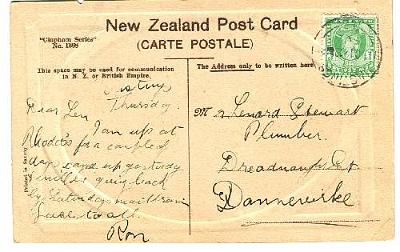 "Clapham Series"
No. 1898
New Zealand Post Card
(CARTE POSTALE)
This space may be used for communication
in N. Z. or British Empire.
The Address only to be written here
Thursday
Dear Len
I am up at
Rhodes for a couple of
days came up yesterday
will be going back
by Saturdays mail train
to all.
Ron
Mr Lenard Stewart
Plumber.
Dreadnaught St
Dannevirke